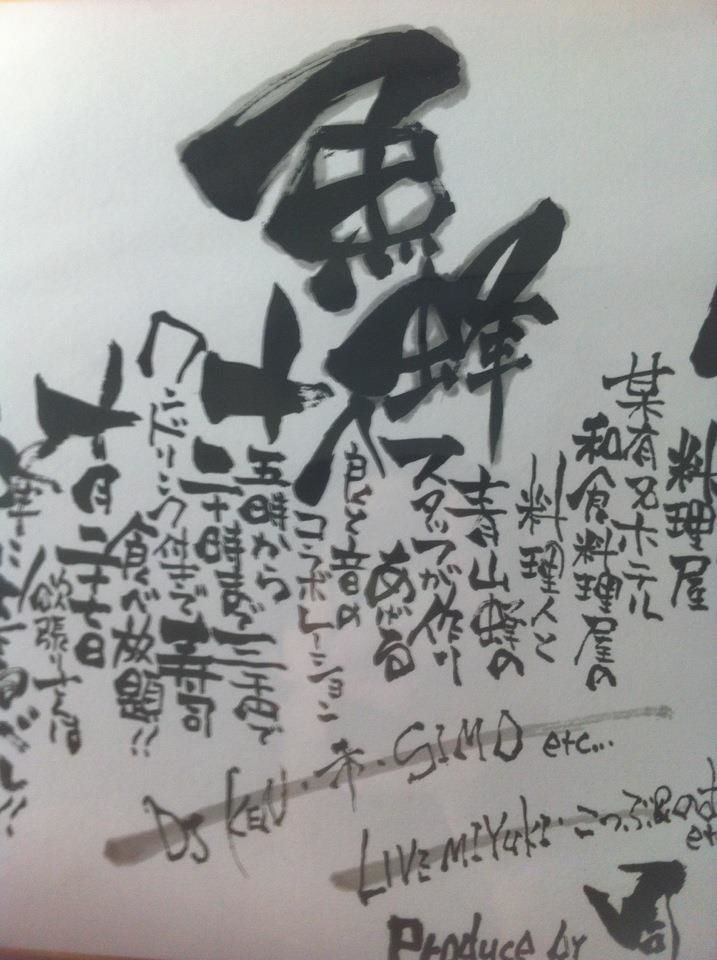 魚蜂
料理屋
某有名ホテル
和食料理屋の
料理人と
青山蜂の
スタッフが作り
あげる
食と音の
コラボレーション
十
五時から
二十時まで三千円で
ワンドリンク付きで寿司
食べ放題!!
十月二十七日
欲張りさんは
DJ KEN・希・SIMO etc...
LIVE MIYUKI・こつぶ
Produce by 司